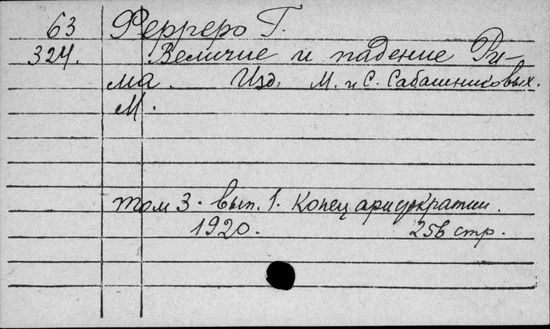 63 Ферреро Г.
324. Величие и падение Ри-
ма. Изд. М. и С. Сабашниковых.
М.
том 3. вып. 1. Конец аристократии.
1920. 256 стр.